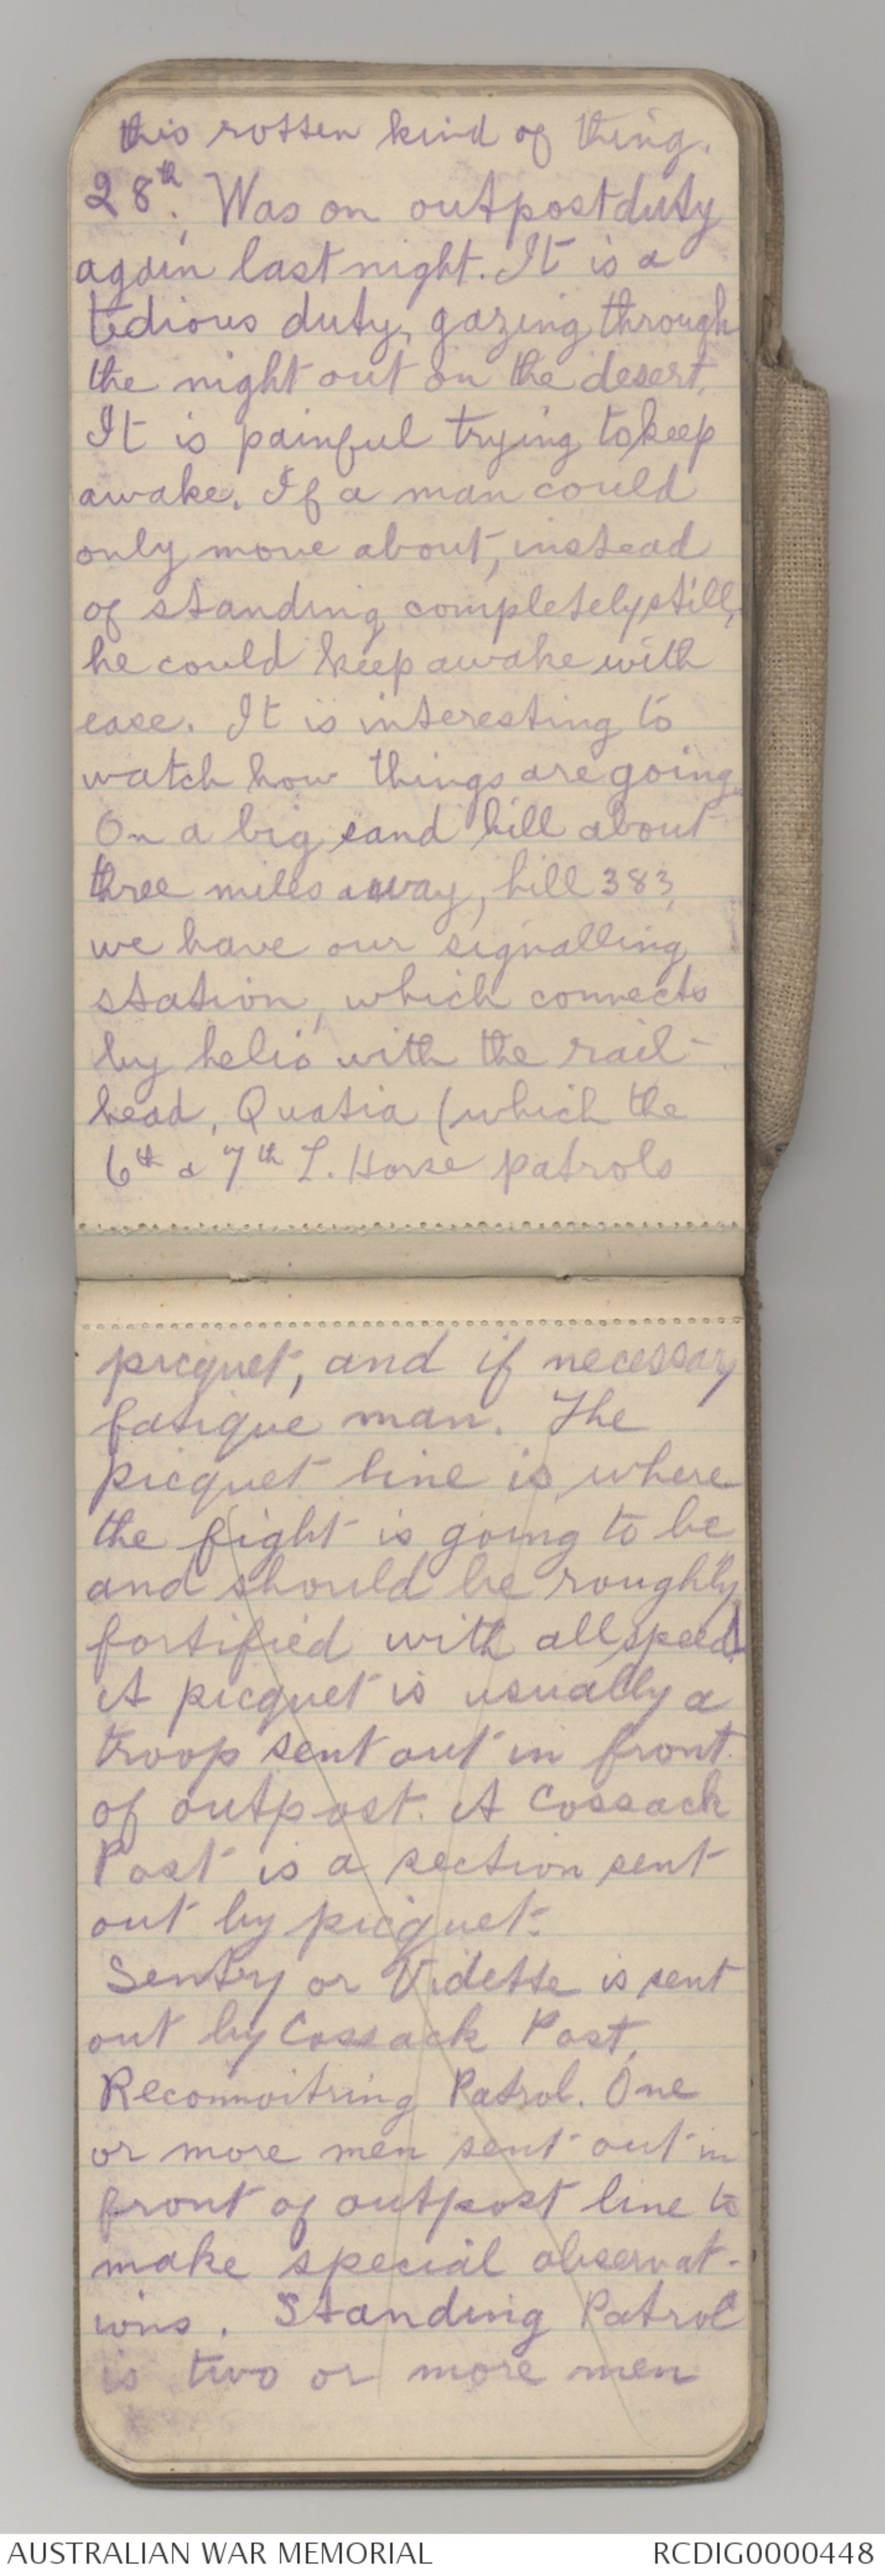 this rotten kind of thing.
28th. Was on outpost duty
again last night. It is a
tedious duty, gazing through
the night out on the desert.
It is painful trying to keep
awake. If a man could
only move about, instead
of standing completely still,
he could keep awake with
ease. It is interesting to
watch how things are going.
On a big sand hill about
three miles away, hill 383,
we have our signalling
station, which connects
by helio with the rail-
head, Quatia (which the
6th & 7th L. Horse patrols
picquet, and if necessary
fatigue man. The
picquet line is where
the fight is going to be
and should be roughly
fortified with all speed.
A picquet is usually a
troop sent out in front
of outpost. A Cossack
Post is a section sent
out by picquet.
Sentry or Vidette is sent
out by Cossack Post.
Reconnoitring Patrol. One
or more men sent out in
front of outpost line to
make special observat-
ions. Standing Patrol
is two or more men
AUSTRALIAN WAR MEMORIAL
RCDIG0000448